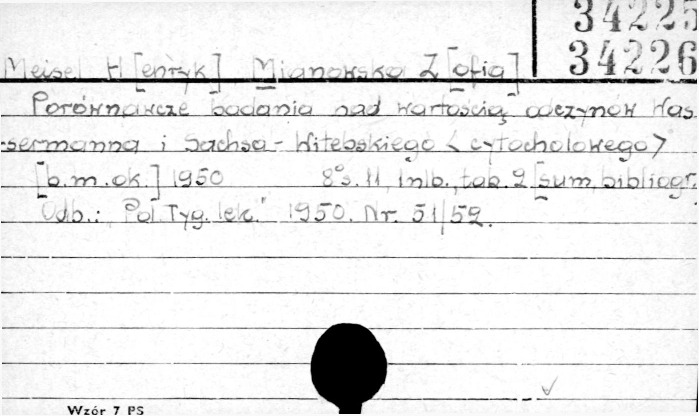 34225
34226
Meisel H[enryk] Mianowska Z[ofia]
Porównawcze badania nad wartością odczynów Was
sermanna i Sachsa-Witebskiego <cytocholowego>
[b.m.ok.] 1950 8° s. 11, 1nlb., tab. 2 [sum, bibliogr.
Odb.: "Pol. Tyg. lek." 1950. Nr. 51/52.
Wzór 7 PS